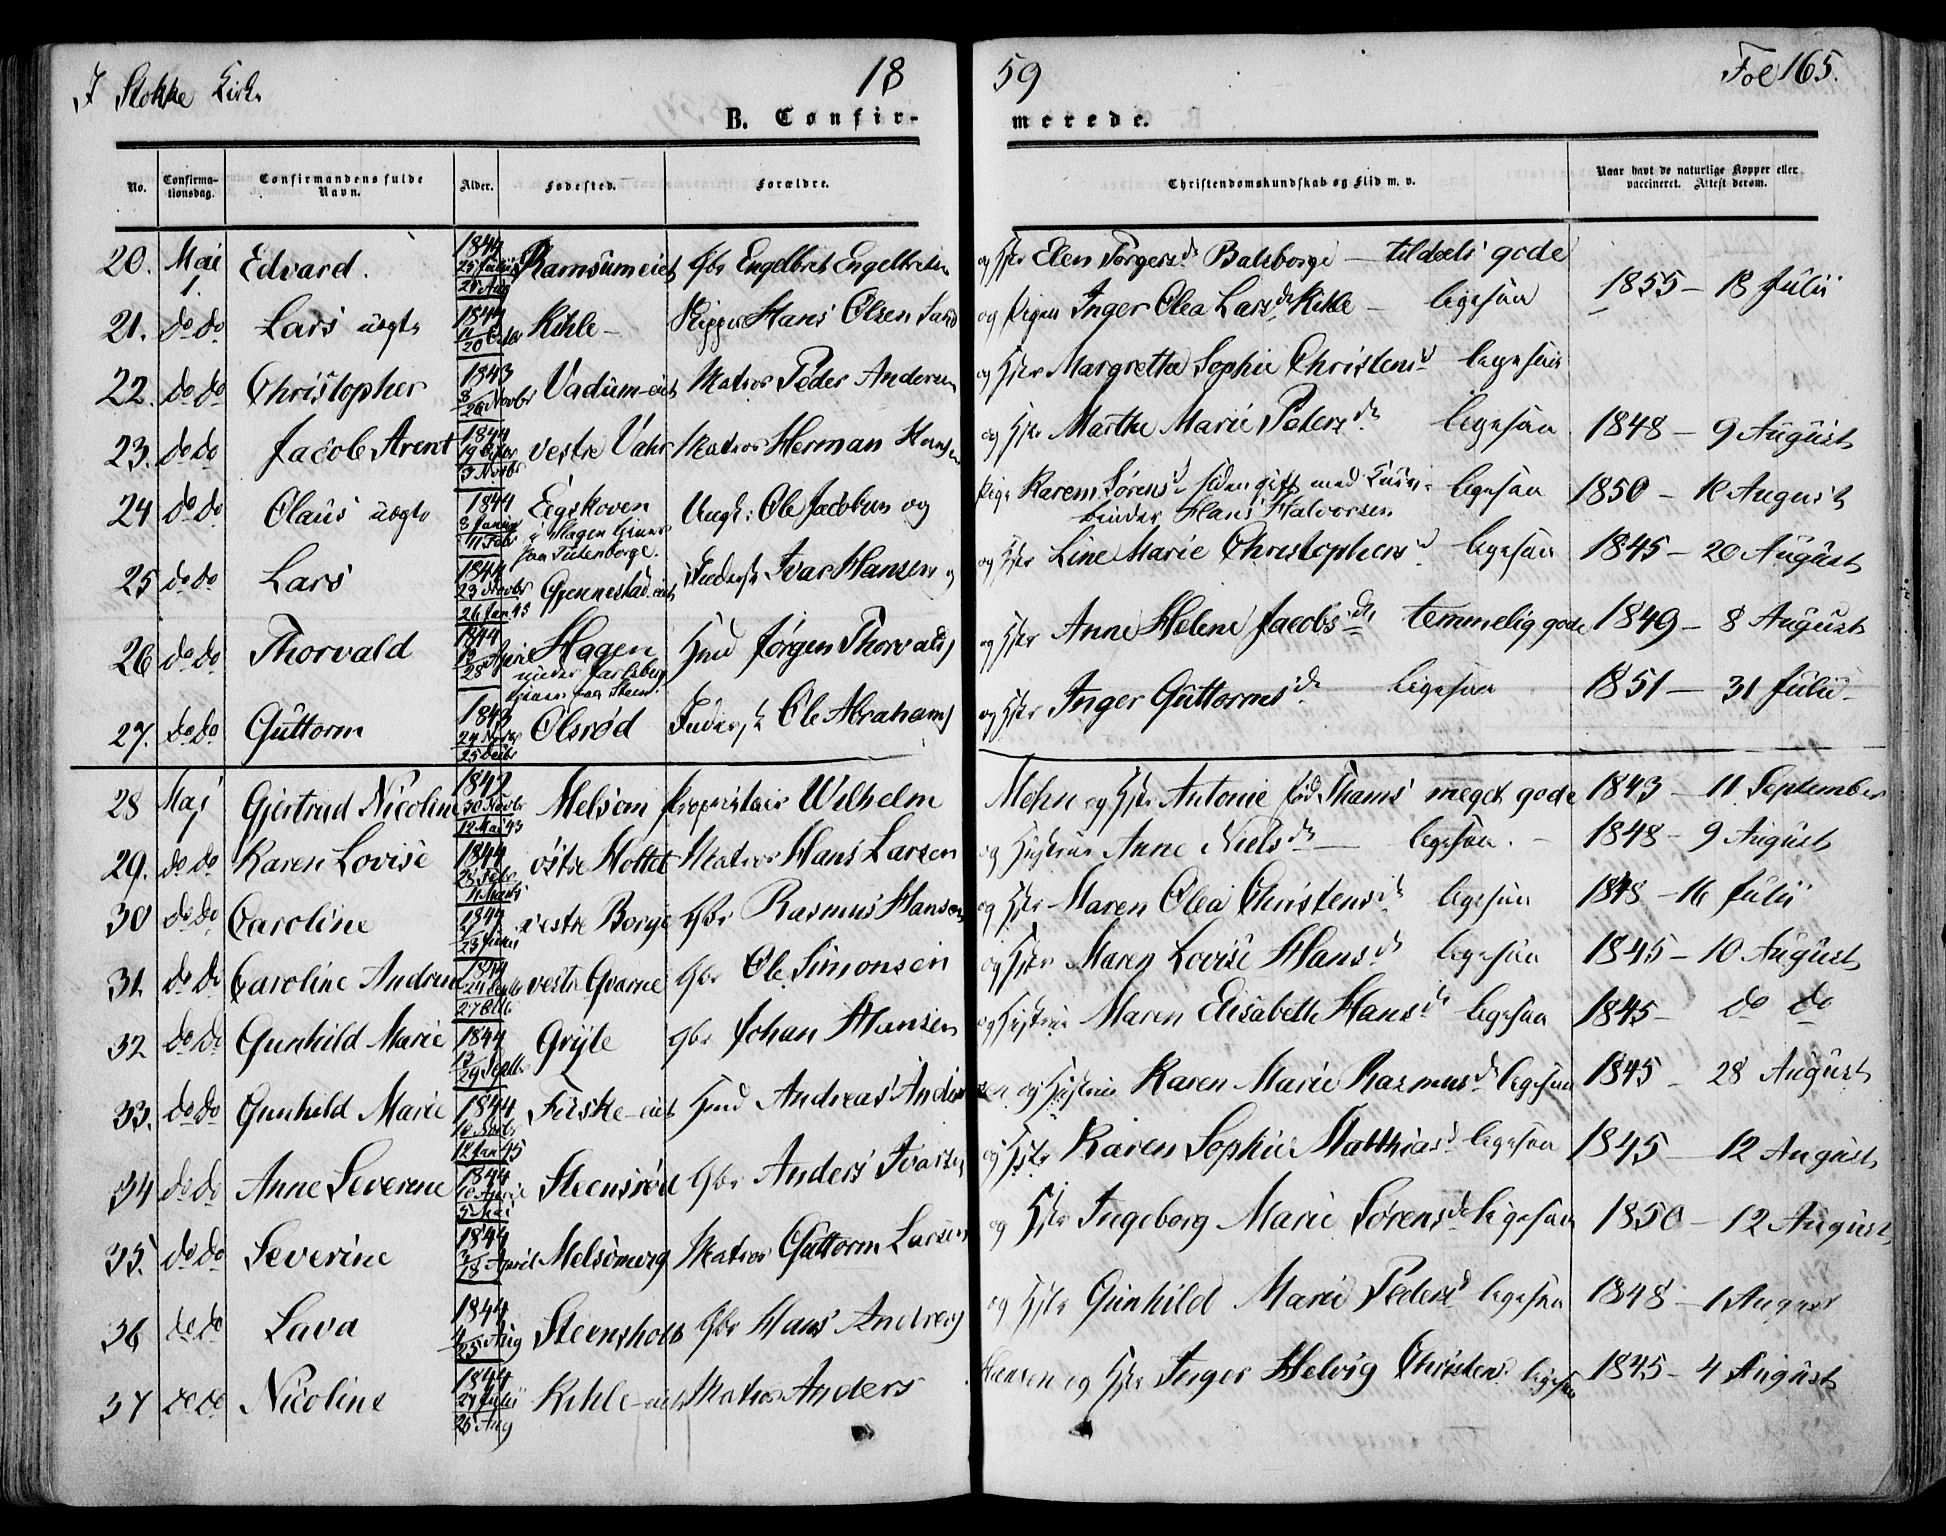 I Stokke Kirke
18
59
Fol 165.
B. Confir-
merede.
No.
Confirma-
tionsdag.
Confirmandens fulde
Navn.
Alder.
Fødested.
Forældre.
Christendomskundskab og Flid m. v.
Naar havt de naturlige Kopper eller
vaccineret. Attest derom.
20. Mai 1. Edvard. 1844 25 Julii 25 Aug Ramsum eiet Gbr Engelbret Engelbretsen og Hstr Elen Torgersd. Balsborge — tildeels gode
21. do do Lars uægte 1844 20 Octbr Kihle — Skipper Hans Olsen og Pigen Inger Olea Larsd. Kihle — ligesaa 1855 — 18 Julii
22. do do Christopher 1843 8 26 Novbr Vadum-eiet Matros Peder Andersen og Hstr Margrethe Sophie Christensd. ligesaa
23. do do Jacob Arent 1844 19 Octbr 3 Novbr vestre Vahr Matros Herman Hansen og Hstr Marthe Marie Petersd. ligesaa 1848 — 9 August
24 do do Olaus uægte 1844 8 Januar 11 Febr Egskoven i Slagen Ungk: Ole Jacobsen og Pige Karen Sørensd. siden gift med
Hans Halvorsen ligesaa 1850 — 12 August
25 do do Lars 1844 23 Novbr 26 Jan 45 Gjennestad eiet Inderst Ivar Hansen og Hstr Line Marie Christophersd. ligesaa 1845 — 20 August
26 do do Thorvald 1844 12 28 April Hagen
under Jarlsberg
Hmd Jørgen Thorvalds og Hstr Anne Helene Jacobsd. temmelig gode 1849 — 8 August
27. do do Guttorm 1843 24 Novbr 25 Decbr Olsrød Inderst Ole Abrahams og Hstr Inger Guttormsd. ligesaa 1851 — 31 Julii
28 Maj Gjertrud Nicoline 1842 30 Novbr 12 Mai 43 Melsom Proprietair Wilhelm Mohn og Hstr Antonie født Thams meget gode 1843 — 11 September
29. do do Karen Lovise 1844 25 Febr 11 Marts østre Hottet Matros Hans Larsen og Hustrue Anne Nielsd. — ligesaa. — 1848 — 9 August
30 do do Caroline 1844 23 Junii vestre Borge Gbr Rasmus Hansen og Hstr Maren Olea Christensd. ligesaa 1848 — 16 Julii
31. do do Caroline Andrine 1844 27 Octb vestre Qvarne Gbr Ole Simonsen og Hstr Maren Lovise Hansd. ligesaa 1845 — 10 August
32 do do Gunhild Marie 1844 13 29 Septbr Gryte Gbr Johan Hansen og Hustrue Maren Elisabeth Hansd. ligesaa 1845 — do do
33. do do Gunhild Marie 1844 16 Novbr 12 Jan 45 Feeske-eiet Hmd Andreas Andersen og Hustrue Karen Marie Rasmusd. ligesaa 1845 — 28 August
34 do do Anne Severine 1844 10 April 5 Mai Steensrød Gbr Anders Ivarsen og Hstr Karen Sophie Matthiasd. ligesaa 1845 — 12 August
35. do do Severine 1844 3 18 April Melsomvig Matros Guttorm Larsen og Hstr Ingeborg Marie Sørensd. ligesaa 1850 — 12 August
36 do do Lava 1844 4 25 Aug Steensholt Gbr Hans Andreas og Hstr Gunhild Marie Pedersd. ligesaa 1848 — 1 August
37 do do Nicoline 1844 24 Julii 25 Aug Kihle-eiet Matros Anders Hansen og Hstr Inger Helvig Christensd. ligesaa 1845 — 4 August